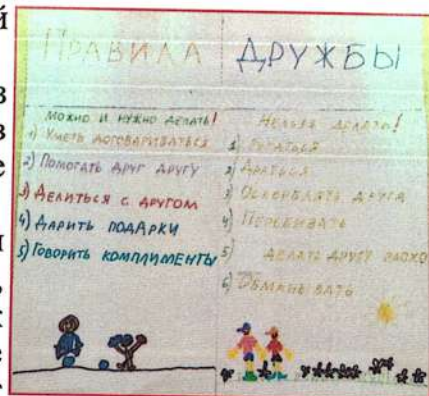 ПРАВИЛА ДРУЖБЫ
МОЖНО И НУЖНО ДЕЛАТЬ!
1) УМЕТЬ ДОГОВАРИВАТЬСЯ
2) ПОМОГАТЬ ДРУГ ДРУГУ
3) ДЕЛИТЬСЯ С ДРУГОМ
4) ДАРИТЬ ПОДАРКИ
5) ГОВОРИТЬ КОМПЛИМЕНТЫ
НЕЛЬЗЯ ДЕЛАТЬ!
1) РУГАТЬСЯ
2) ДРАТЬСЯ
3) ОСКОРБЛЯТЬ ДРУГА
4) ПЕРЕБИВАТЬ
5) ДЕЛАТЬ ДРУГУ ПЛОХО
6) ОБМАНЫВАТЬ